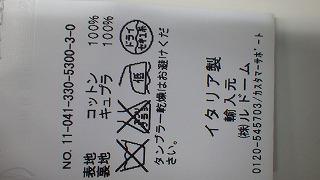 NO. 11-041-330-5300-3-0
表地 コットン 100%
裏地 キュプラ 100%
ドライ
セキユ系
エンソ
サラシ
低
タンブラー乾燥はお避けくだ
さい。
イタリア製
輸入元
(株)ルドーム
0120-545703/カスタマーサポート